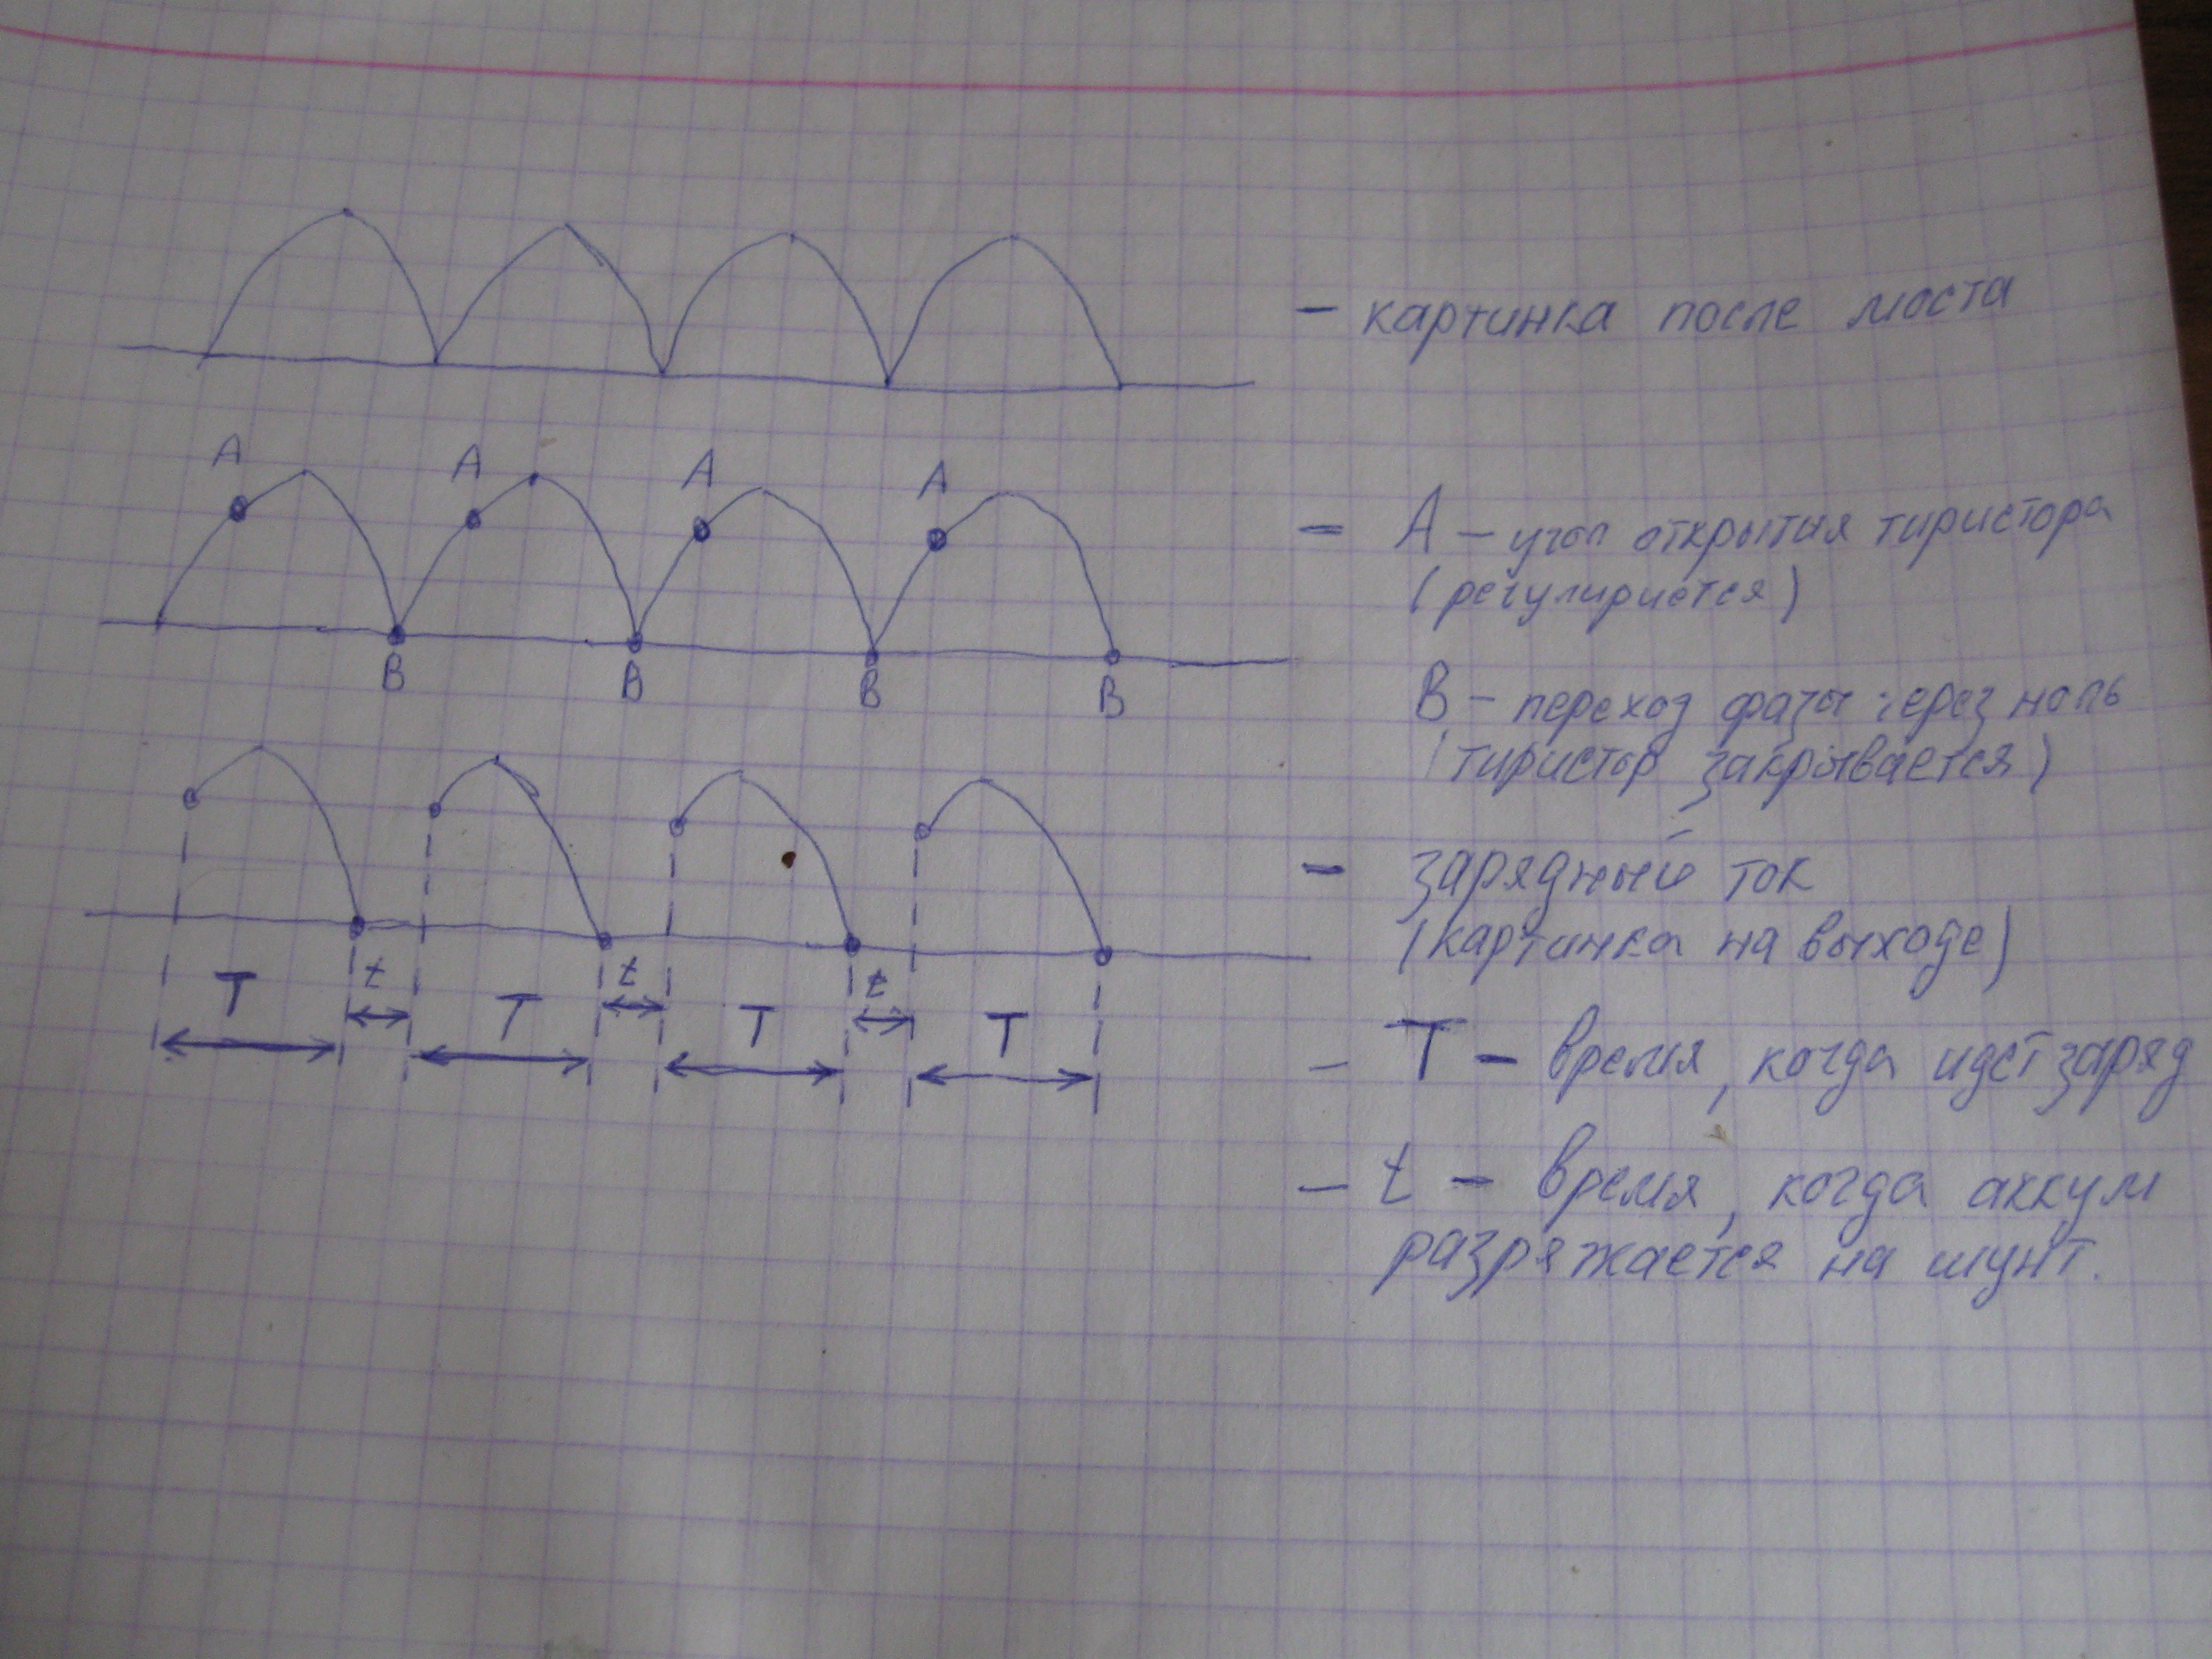 - картинка после моста
A A A A
- А - угол открытия тиристора
(регулируется)
B B B B
В - переход фазы через ноль
(тиристор закрывается)
- зарядный ток
(картинка на выходе)
t t t
T T T T
- T - время, когда идет заряд
- t - время, когда аккум
разряжается на шунт.